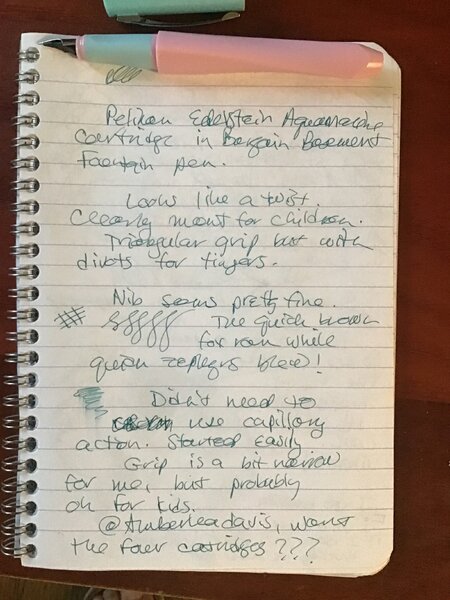 Pelikan Edelstein Aquamarine
cartridge in Bargain Basement
fountain pen.
Looks like a twist.
Clearly meant for children.
Triangular grip but with
divots for fingers.
Nib seems pretty fine.
The quick brown
fox ran while
quick zephyrs blew!
Didn't need to
use capillary
action. Started easily
Grip is a bit narrow
for me, but probably
ok for kids.
@Amberleadavis, want
the four cartridges???